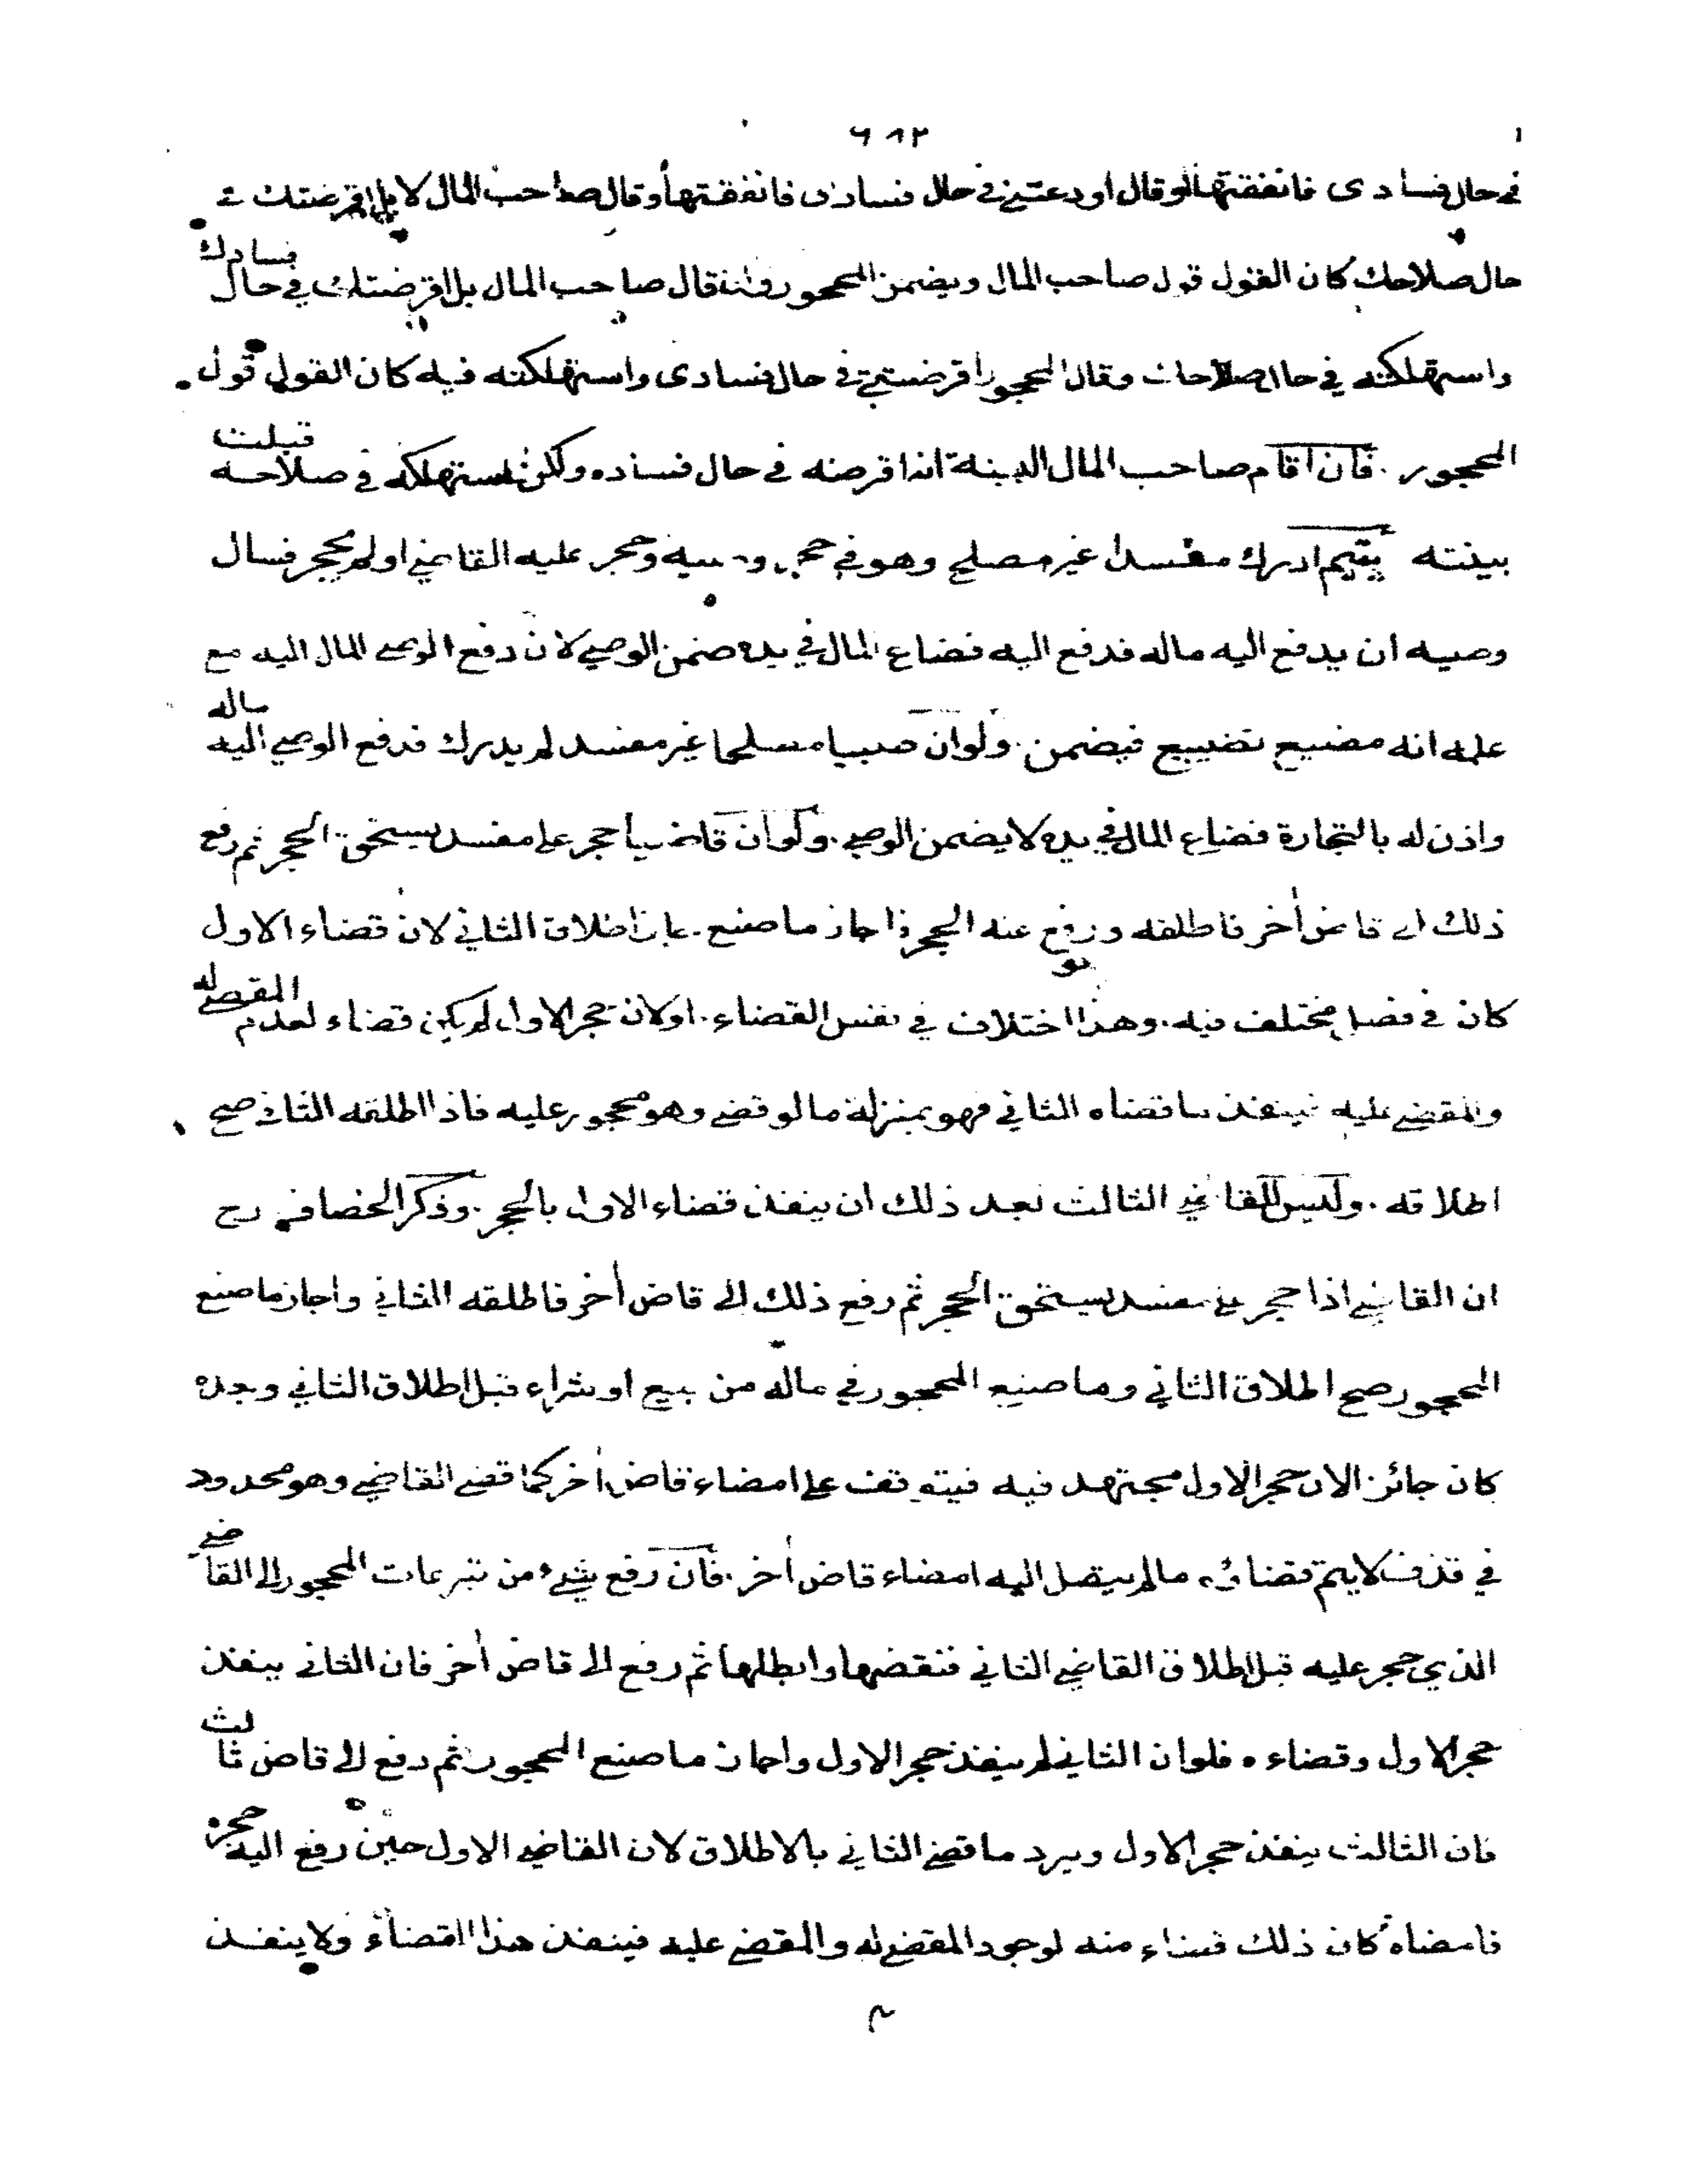 ٦١٢
في حال فسادى فانفقتها او قال اودعتني في حال فسادى فانفقتها وقال صاحب المال لا بل اقرضتك في
حال صلاحك كان القول قول صاحب المال ويضمن المحجور وان قال صاحب المال بل اقرضتك في حال فسادك
واستهلكته في حال صلاحك وقال المحجور اقرضتني في حال فسادى واستهلكته فيه كان القول قول
المحجور . فان اقام صاحب المال البينة انه اقرضه في حال فساده ولكن استهلكه في صلاحه قبلت
بينته يتيم ادرك مفسدا غير مصلح وهو في حجر وصيه وحجر عليه القاضي او لم يحجر فسال
وصيه ان يدفع اليه ماله فدفع اليه فضاع المال في يده ضمن الوصي لان دفع الوصي المال اليه مع
علمه انه مضيع تضييع فيضمن . ولو ان صبيا مصلحا غير مفسد لم يدرك فدفع الوصي اليه ماله
واذن له بالتجارة فضاع المال في يده لا يضمن الوصي . ولو ان قاضيا حجر على مفسد يستحق الحجر ثم رفع
ذلك الى قاض أخر فاطلقه ورفع عنه الحجر واجاز ما صنع . جاز اطلاق الثاني لان قضاء الاول
كان في فصل مختلف فيه . وهذا اختلاف في نفس القضاء . او لان حجر الاول لم يكن قضاء لعدم المقضي له
والمقضي عليه فينفذ ما قضاه الثاني فهو بمنزلة ما لو قضي وهو محجور عليه فاذا اطلقه الثاني صح
اطلاقه . وليس للقاضي الثالث بعد ذلك ان ينفذ قضاء الاول بالحجر . وذكر الخصاف رح
ان القاضي اذا حجر على مفسد يستحق الحجر ثم رفع ذلك الى قاض أخر فاطلقه الثاني واجاز ما صنع
المحجور صح اطلاق الثاني وما صنع المحجور في ماله من بيع او شراء قبل اطلاق الثاني وبعده
كان جائزا لان حجر الاول مجتهد فيه فيتوقف على امضاء قاض أخر كما قضي القاضي وهو محدود
في قذف لا يتم قضاؤه ما لم يتصل اليه امضاء قاض أخر . فان رفع شيء من تبرعات المحجور الى القاضي
الذي حجر عليه قبل اطلاق القاضي الثاني فنقضها وابطلها ثم رفع الى قاض أخر فان الثاني ينفذ
حجر الاول وقضاءه فلو ان الثاني لم ينفذ حجر الاول واجاز ما صنع المحجور ثم رفع الى قاض ثالث
فان الثالث ينفذ حجر الاول ويرد ما قضي الثاني بالاطلاق لان القاضي الاول حين رفع اليه حجره
فامضاه كان ذلك قضاء منه لوجود المقضي له والمقضي عليه فينفذ هذا القضاء ولا ينفذ